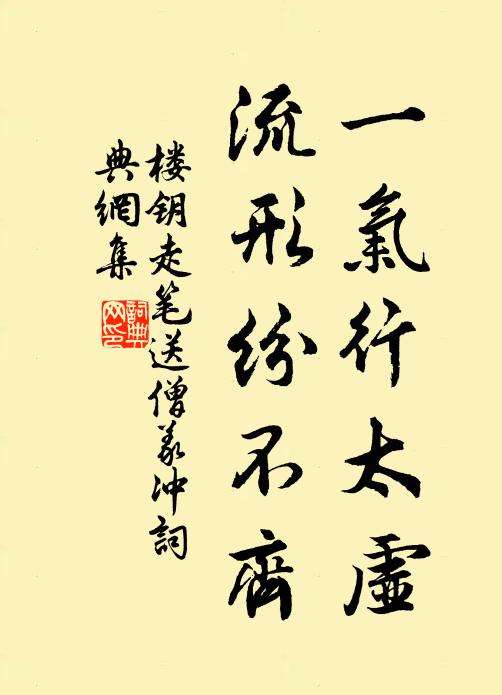 一氣行太虛
流形纷不齊
楼钥走笔送僧义冲詞
典網集
詞典网印